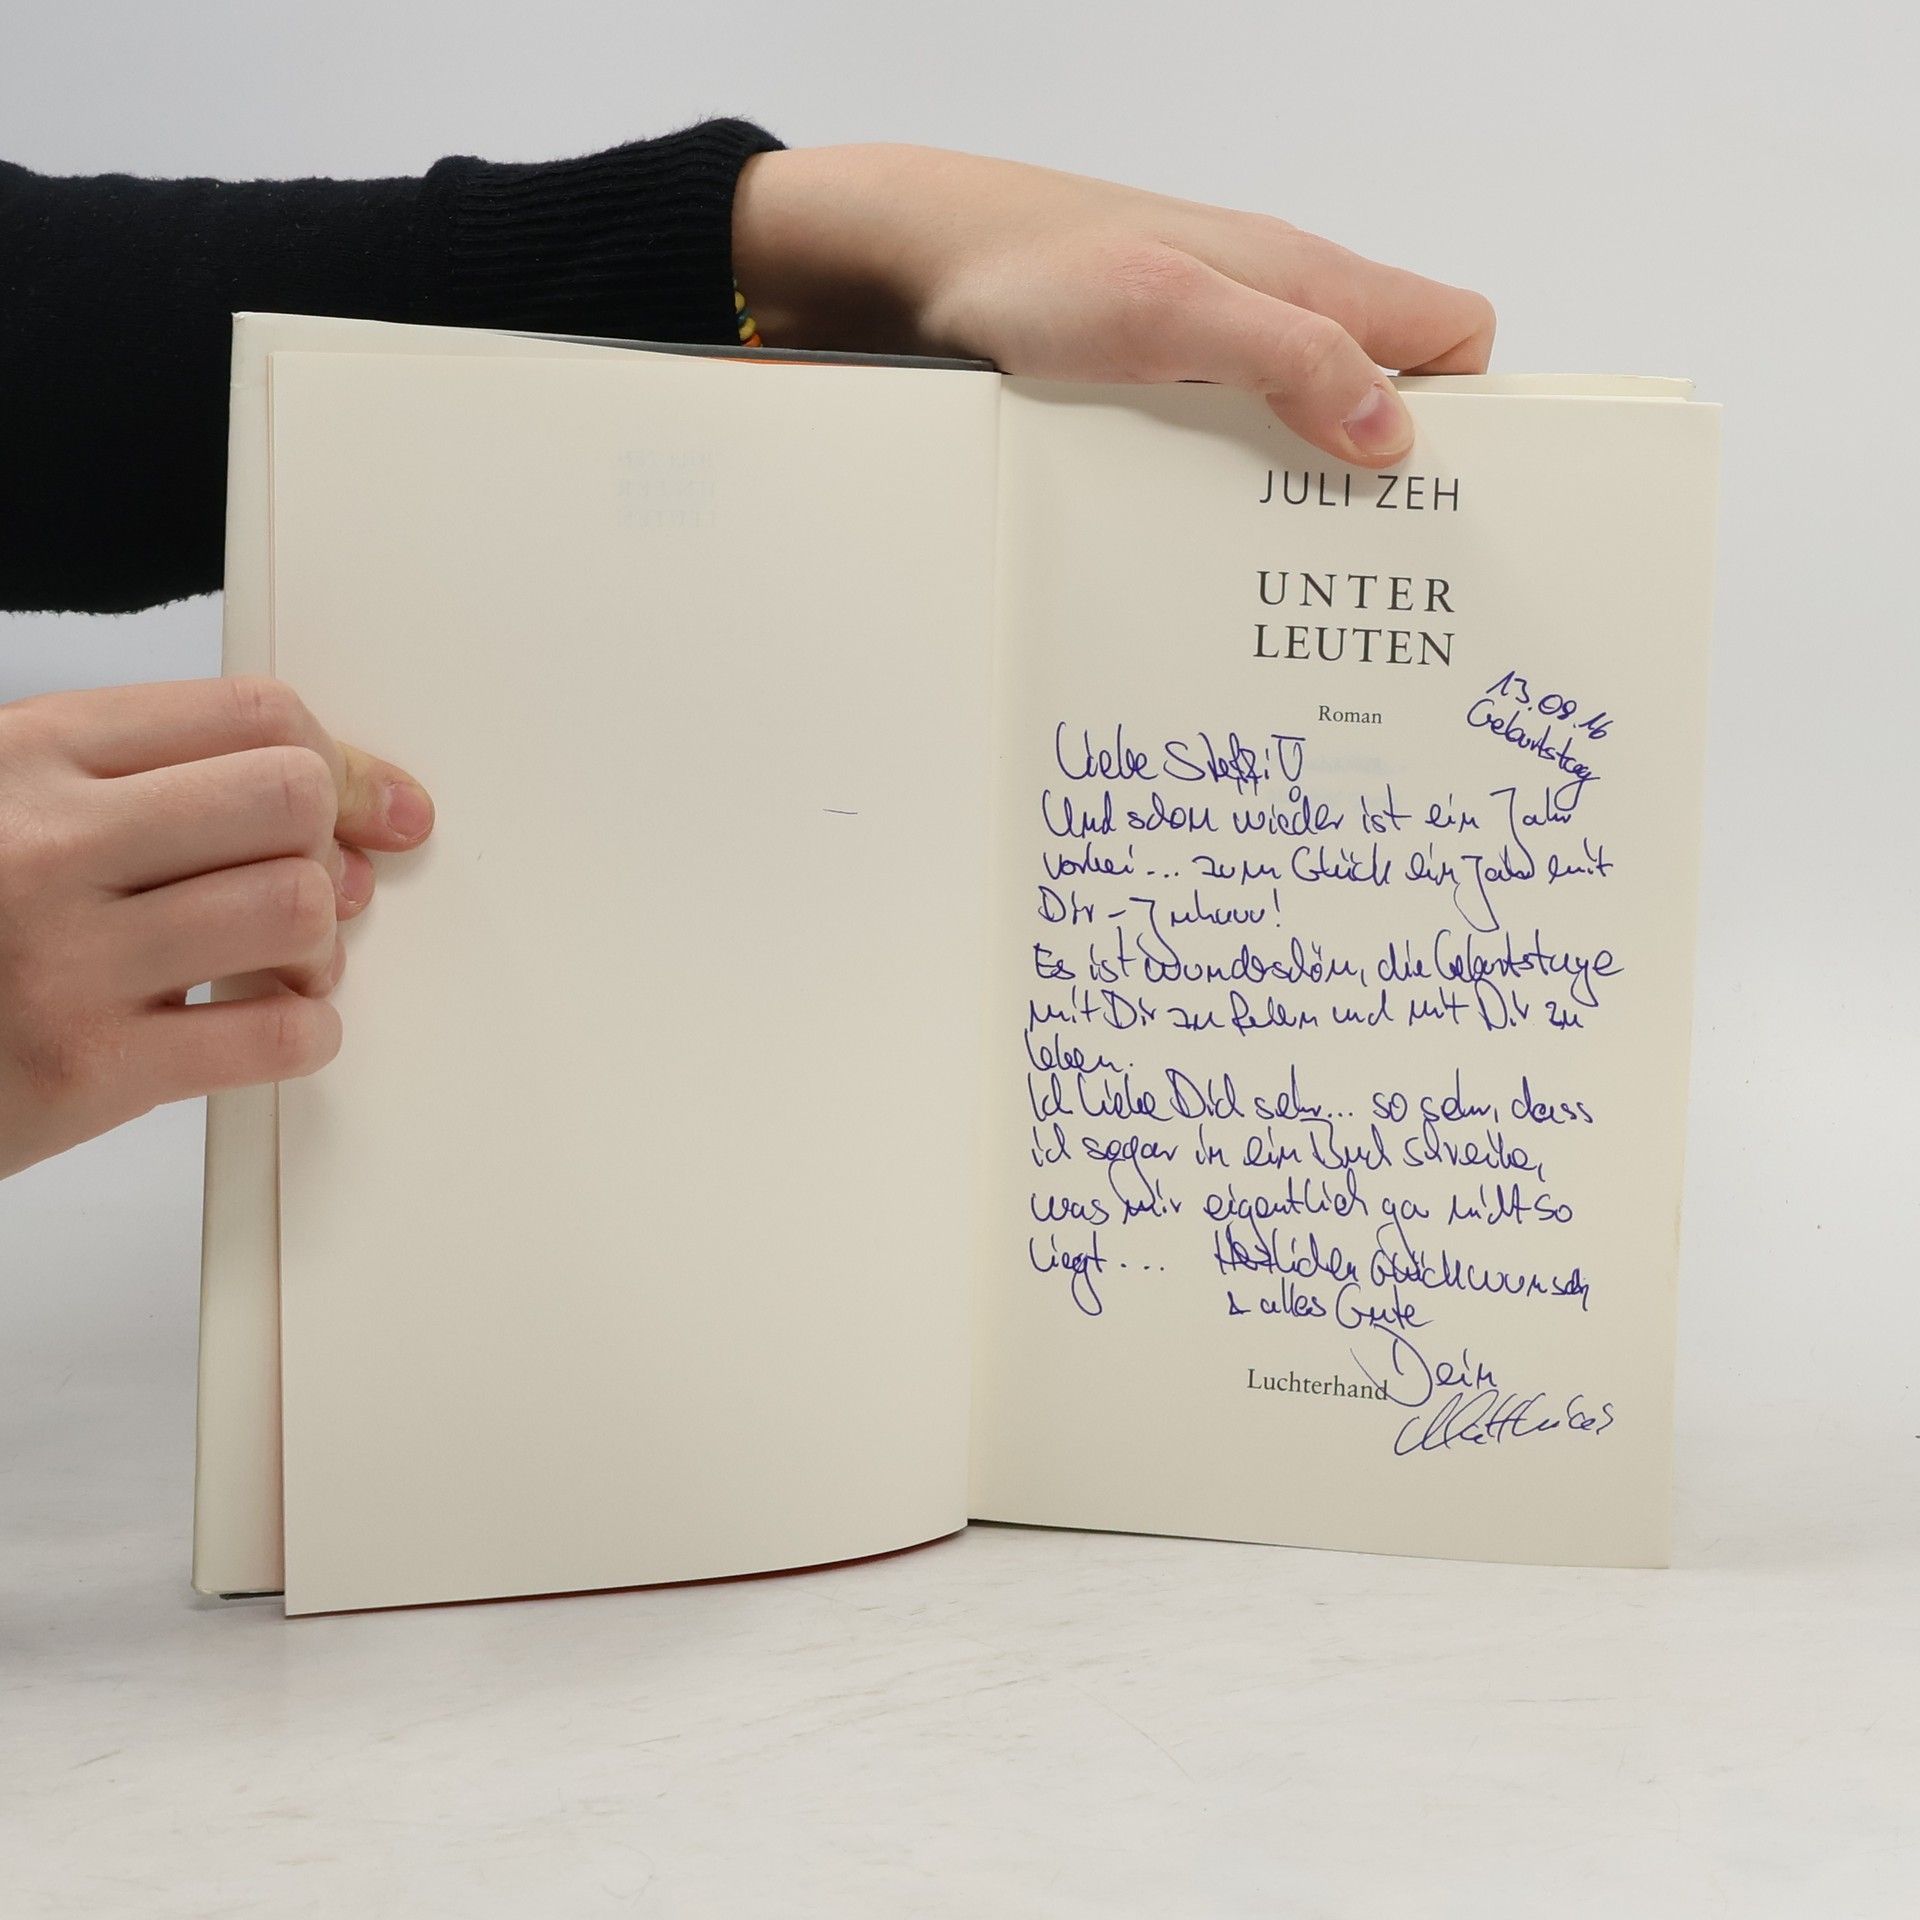 JULI ZEH
UNTER
LEUTEN
Roman
13.09.16
Geburtstag
Liebe Steffi!
Und schon wieder ist ein Jahr
vorbei... zum Glück ein Jahr mit
Dir - Juhuuu!
Es ist wunderschön, die Geburtstage
mit Dir zu feiern und mit Dir zu
leben.
Ich liebe Dich sehr... so sehr, dass
ich sogar in ein Buch schreibe,
was mir eigentlich gar nicht so
liegt... Herzlichen Glückwunsch
& alles Gute
Dein
Matthias
Luchterhand